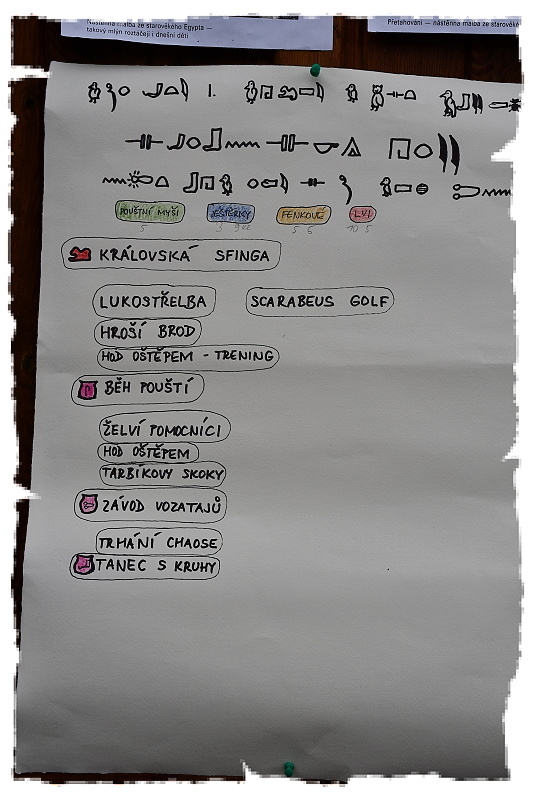 Nástěnná malba ze starověkého Egypta —
takový mlýn roztáčejí i dnešní děti
Přetahování — nástěnná malba ze starověké
I.
POUŠTNÍ MYŠI JEŠTĚRKY FENKOVÉ LVI
5 3 5 6 10 5
KRÁLOVSKÁ SFINGA
LUKOSTŘELBA SCARABEUS GOLF
HROŠÍ BROD
HOD OŠTĚPEM - TRENING
BĚH POUŠTÍ
ŽELVÍ POMOCNÍCI
HOD OŠTĚPEM
TARBÍKOVY SKOKY
ZÁVOD VOZATAJŮ
TRHÁNÍ CHAOSE
TANEC S KRUHY